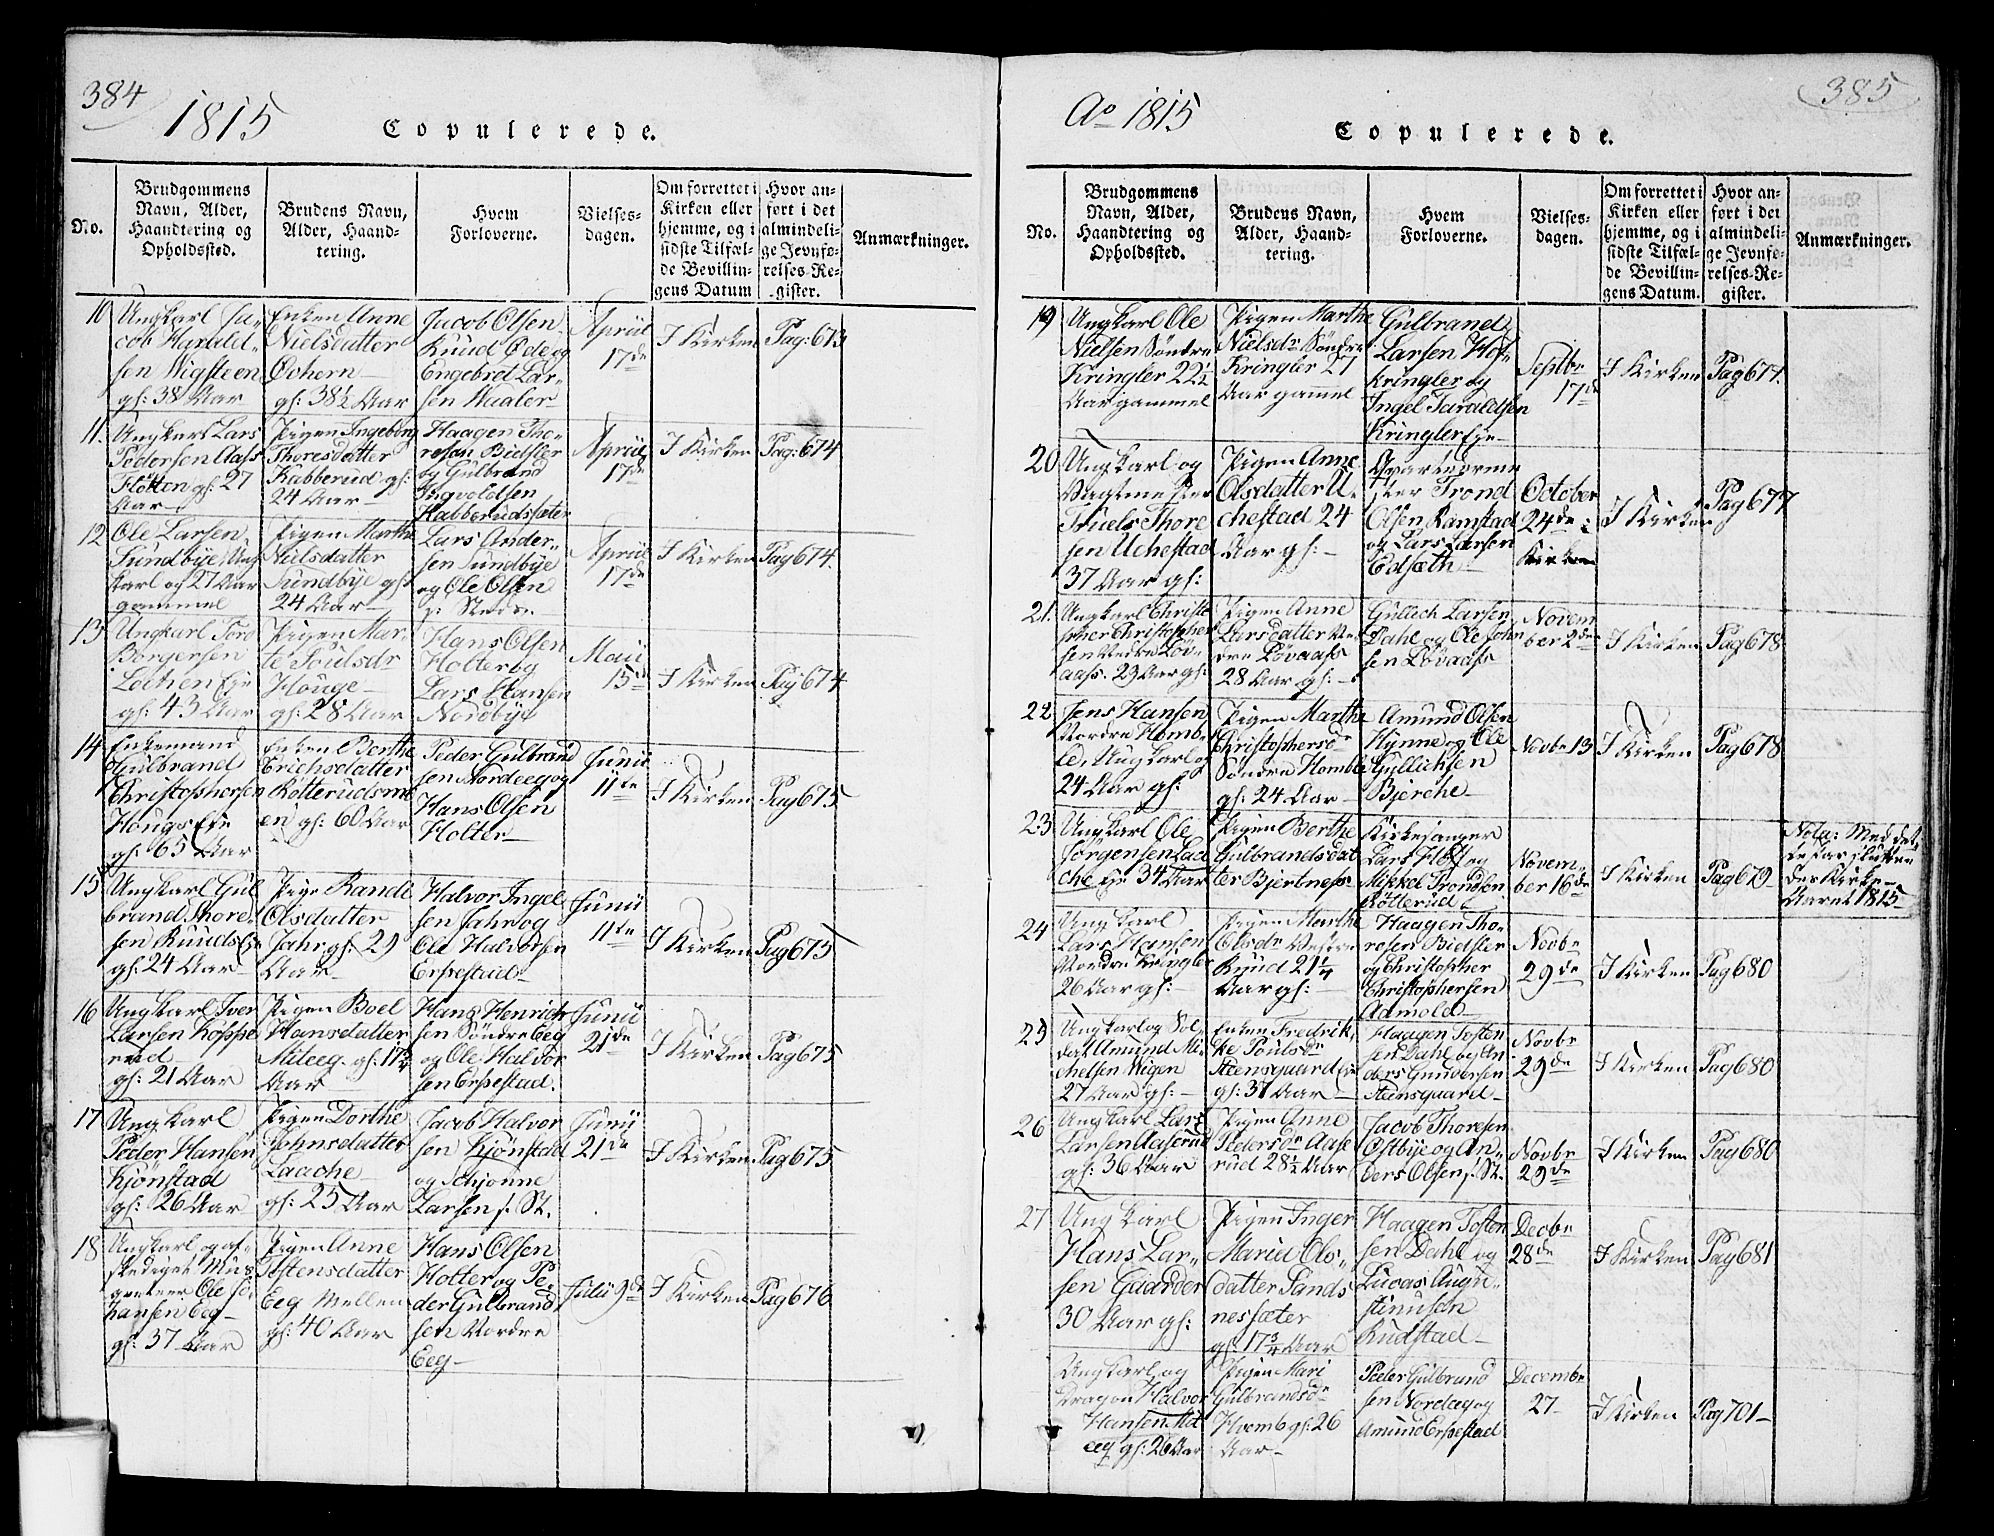 384
1815
Copulerede.
No.
Brudgommens Navn, Alder, Haandtering og Opholdssted.
Brudens Navn, Alder, Haandtering.
Hvem Forloverne.
Vielses-dagen.
Om forrettet i Kirken eller hjemme, og i sidste Tilfælde Bevillingens Datum
Hvor anført i det almindelige Jevnførelses-Register.
Anmærkninger.
10 Ungkarl Jacob Haraldsen Wigsteen gl: 38 Aar
Enken Anne Nielsdatter Ochern gl: 38½ Aar
Jacob Olsen Ruud Øde og Engebret Larsen Waaler
Apriil 17de
I Kirken
Pag: 673
11. Ungkarl Lars Pedersen Aass Flotten gl: 27 Aar
Pigen Ingeborg Thoresdatter Kabberud gl: 24 Aar
Haagen Thoresen Bidsler og Gulbrand Ingvoldsen Kabberudsæter
Apriil 17de
I Kirken
Pag: 674
12 Ole Larsen Sundbye Ungkarl og 27 Aar gammel
Pigen Marthe Nielsdatter Sundbye gl: 24 Aar
Lars Andersen Sundbye og Ole Olsen s: Steds
Apriil 17de
I Kirken
Pag 674.
13 Ungkarl Tord Borgersen Lochen Eje gl: 43 Aar
Pigen Marte Poulsdr Houge gl: 28 Aar
Hans Olsen Holter og Lars Hansen Nordbye
Maii 15de
I Kirken
Pag 674
14 Enkemand Gulbrand Christophersen Hougs Eje gl: 65 Aar
Enken Berthe Erichsdatter Rotterudsmoen gl: 60 Aar
Peder Gulbrandsen Nordeeg og Hans Olsen Holter
Junii 11te
I Kirken
Pag 675
15 Ungkarl Gulbrand Thoresen Ruuds Eje gl: 24 Aar
Pige Randi Olsdatter Jahr gl: 29 Aar
Halvor Ingelsen Jahr og Ole Halvorsen Erpestad
Junii 11te
I Kirken
Pag 675
16 Ungkarl Iver Larsen Kopperud gl: 21 Aar
Pigen Boel Hansdatter Miteeg gl: 17½ Aar
Hans Henrichsen Søndre Eeg og Ole Halvorsen Erpestad.
Junii 21de
I Kirken
Pag 675
17 Ungkarl Peder Hansen Kjønstad gl: 26 Aar
Pigen Dorthe Johnsdatter Laache gl: 25 Aar
Jacob Halvorsen Kjønstad og Schjønne Larsen s. St.
Junij 21de
I Kirken
Pag 675
18 Ungkarl og afskediget Musqveteer Ole Johansen Eeg gl: 37 Aar
Pigen Anne Tostensdatter Eeg Mellem gl: 40 Aar
Hans Olsen Holter og Peder Gulbrandsen Nordre Eeg
Julii 9de
I Kirken
Pag 676
385
Ao 1815
Copulerede.
No.
Brudgommens Navn, Alder, Haandtering og Opholdssted.
Brudens Navn, Alder, Haandtering.
Hvem Forloverne.
Vielses-dagen.
Om forrettet i Kirken eller hjemme, og i sidste Tilfælde Bevillingens Datum.
Hvor anført i det almindelige Jevnførelses-Register.
Anmærkninger.
19 Ungkarl Ole Nielsen Søndre Kringler 22½ Aar gammel
Pigen Marthe Nielsdr Søndre Kringler 27 Aar gammel
Gulbrand Larsen Hofkringler og Ingel Taraldsen Kringler Eje
Septbr 17de
I Kirken
Pag 677.
20 Ungkarl og Vagtmester Truels Thoresen Uchestad 37 Aar gl:
Pigen Anne Olsdatter Uchestad 24 Aar gl:
Qvarteermester Trond Olsen Ramstad og Lars Larsen Edsæth
October 24de
I Kirken
Pag 677
21. Ungkarl Christopher Christophersen Nedre Lövaass. 29 Aar gl:
Pigen Anne Larsdatter Nedre Lövaass 28 Aar gl:
Gullich Larsen Dahl og Ole Johnsen Lövaass
November 2de
I Kirken
Pag 678
22 Jens Hansen Nordre Homble, Ungkarl og 24 Aar gl:
Pigen Marthe Christophersdr Søndre Homble gl: 24 Aar
Amund Olsen Hynne og Ole Gullichsen Bjerche
Novbr 13
I Kirken
Pag 678
23 Ungkarl Ole Jørgensen Lache Eje 34 Aar
Pigen Berthe Gulbrandsdatter Bjertness
Kirkesanger Lars Hoff og Mikkel Trondsen Rotterud
November 16de
I Kirken
Pag 679
Nota: Med dette Par sluttedes Kirke-Aaret 1815
24 Ungkarl Lars Hansen Nordre Kringler 26 Aar gl:
Pigen Marthe Olsdr Vestre Ruud 21¼ Aar gl:
Haagen Thoresen Bidsler og Christopher Christophersen Admold
Novbr 29de
I Kirken
Pag 680
25 Ungkarl og Soldat Amund Michelsen Rigen 27 Aar gl:
Enken Fredrikke Poulsdr Steensgaard Eje gl: 37 Aar
Haagen Tostensen Dahl og Anders Gundersen Steensgaard
Novbr 29de
I Kirken
Pag 680
26 Ungkarl Lars Larsen Aaserud gl: 36 Aar
Pigen Anne Pedersdr Aaserud 28½ Aar
Jacob Thoresen Østbye og Anders Olsen s. St.
Novbr 29de
I Kirken
Pag 680
27 Ungkarl Hans Larsen Gaarder 30 Aar gl:
Pigen Inger Maria Olsdatter Sandsnessæter gl: 17¾ Aar
Haagen Tostensen Dahl og Lucas Augustinusen Rudstad
Decbr 28de
I Kirken
Pag 681
Ungkarl og Dragon Halvor Hansen Midteeg gl: 26 Aar
Pigen Mari Gulbrandsdr Hvemb gl: 26 Aar
Peder Gulbrandsen Nordeeg og Amund Erpestad
Decembr 27
I Kirken
Pag 701